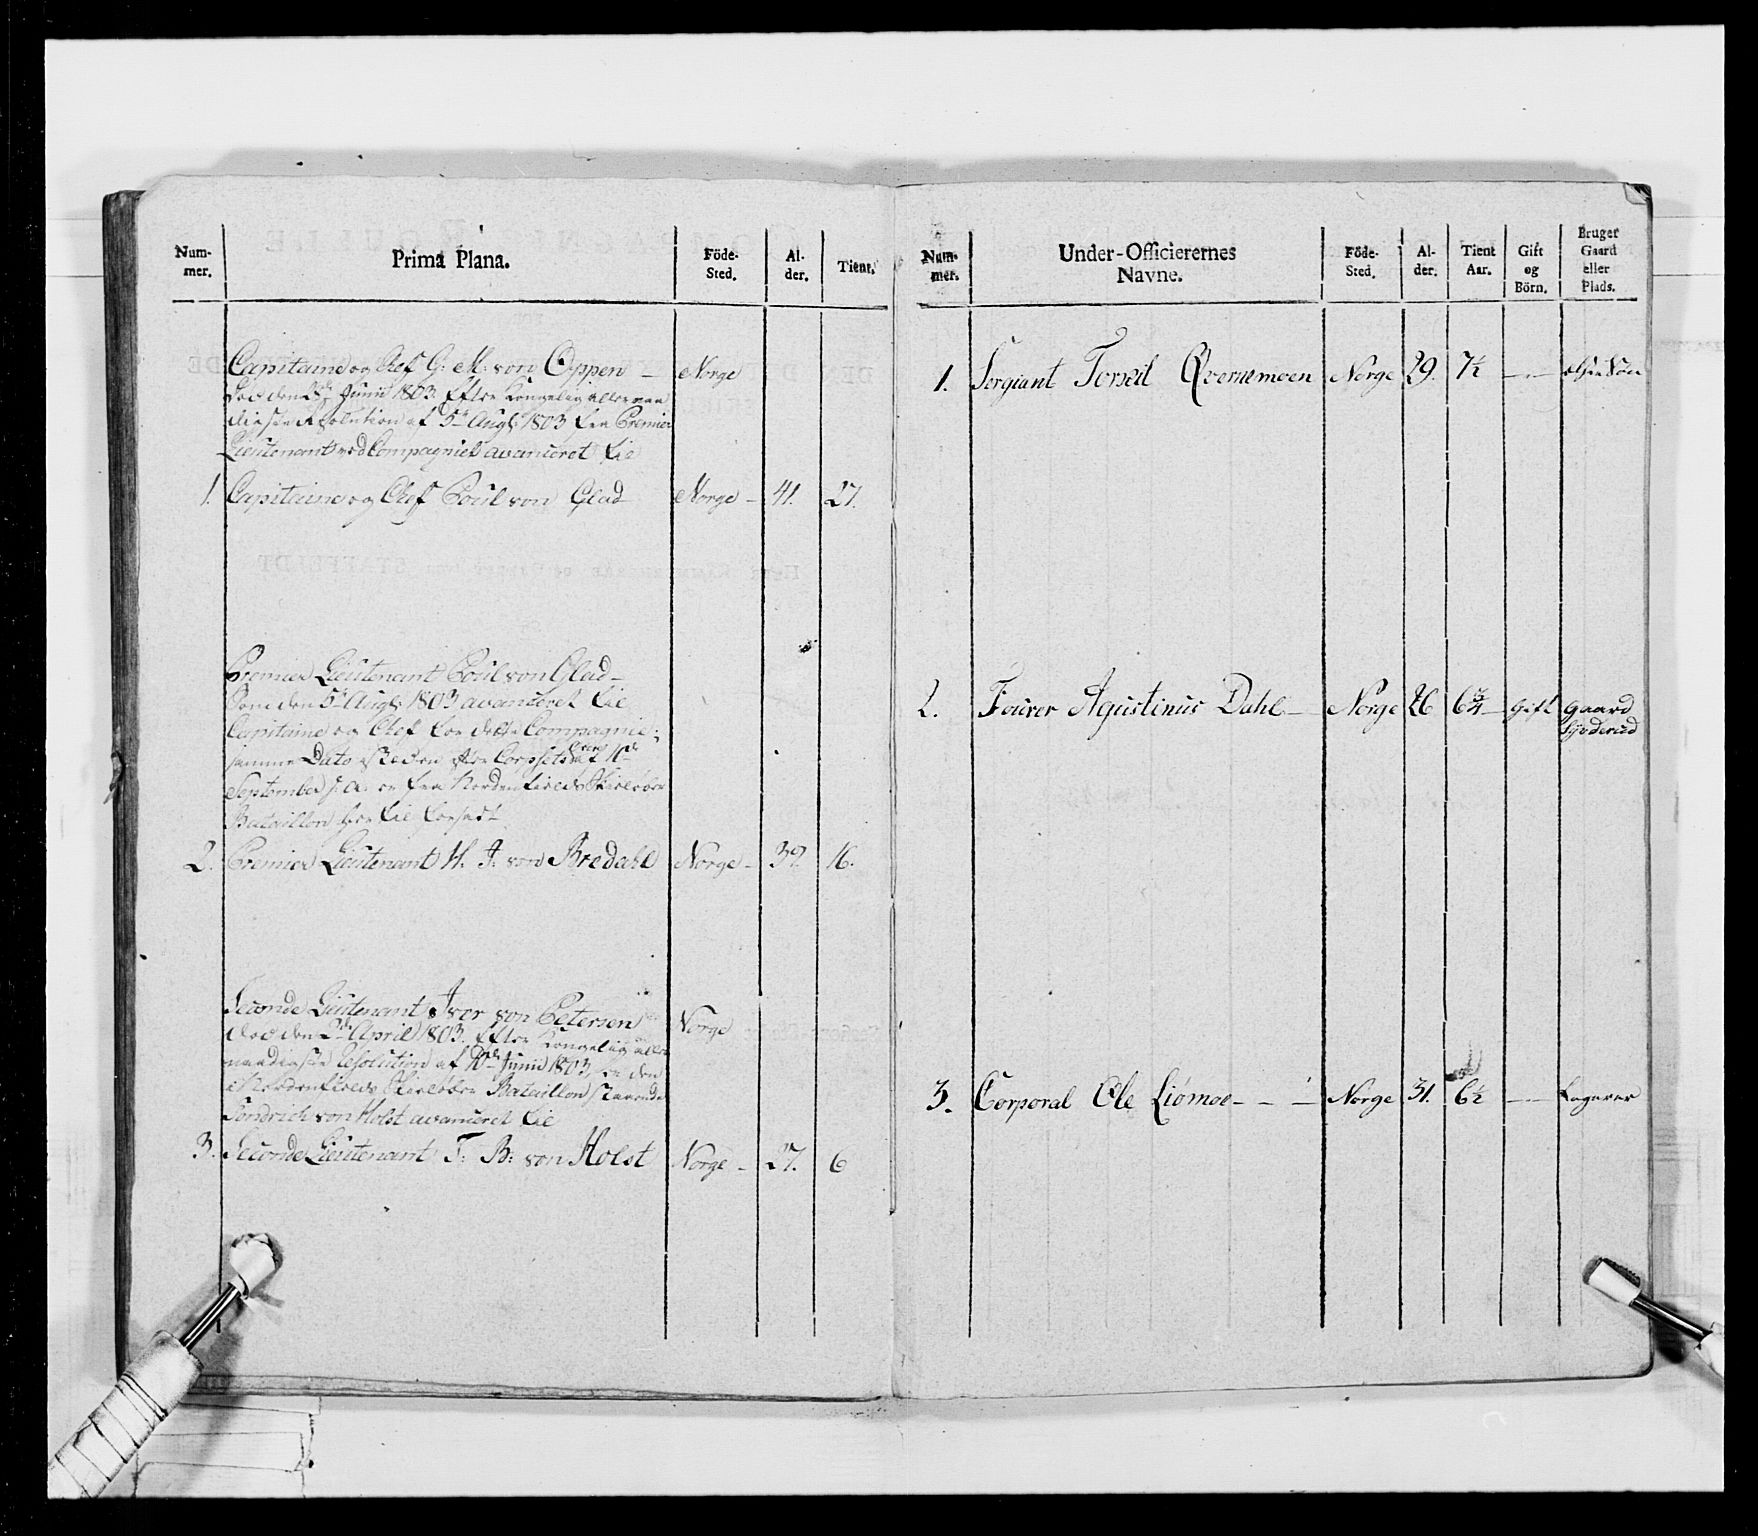 Num-
mer.
Prima Plana.
Föde-
Sted.
Al-
der.
Tient.
Capitaine og Chef G: M: von Oppen — Norge
Död den Junii 1803. Efter Kongelig allernaa
digste Resolution af 5te Augs: 1803 fra Premier
Lieutenant ved Compagniet avanceret til
1. Capitaine og Chef Poul von Glad Norge — 41. 27.
Premier Lieutenant Poul von Glad —
Som den 5te Augs: 1803 avanceret til
Capitaine og Chef for dette Compagnie:
samme Dato isteden efter Corpsets af
September s: A: er fra Nordenfieldske Skielöber
Bataillon her til forsadt
2. Premier Lieutenant H. J: von Bredahl Norge — 39. 16.
Seconde Lieutenant Iver von Petersen Norge
död den 2den April 1803. Efter Kongelig aller
naadigste Resolution af Junii 1803, er den
Nordenfieldske Skielöber Bataillon staaende
Fendrich von Holst avanceret til
3. Seconde Lieutenant F: B: von Holst Norge — 27. 6
Num-
mer.
Under-Officierernes
Navne.
Föde-
Sted.
Al-
der.
Tient
Aar.
Gift
og
Börn.
Bruger
Gaard
eller
Plads.
1. Sergiant Torkil Qvernemoen Norge 29. 7½ —
2. Fourer Agustinus Dahl — Norge 26 6¾ Gift Gaard
3. Corporal Ole Liömoe — — — Norge 31. 6½ — Logerer